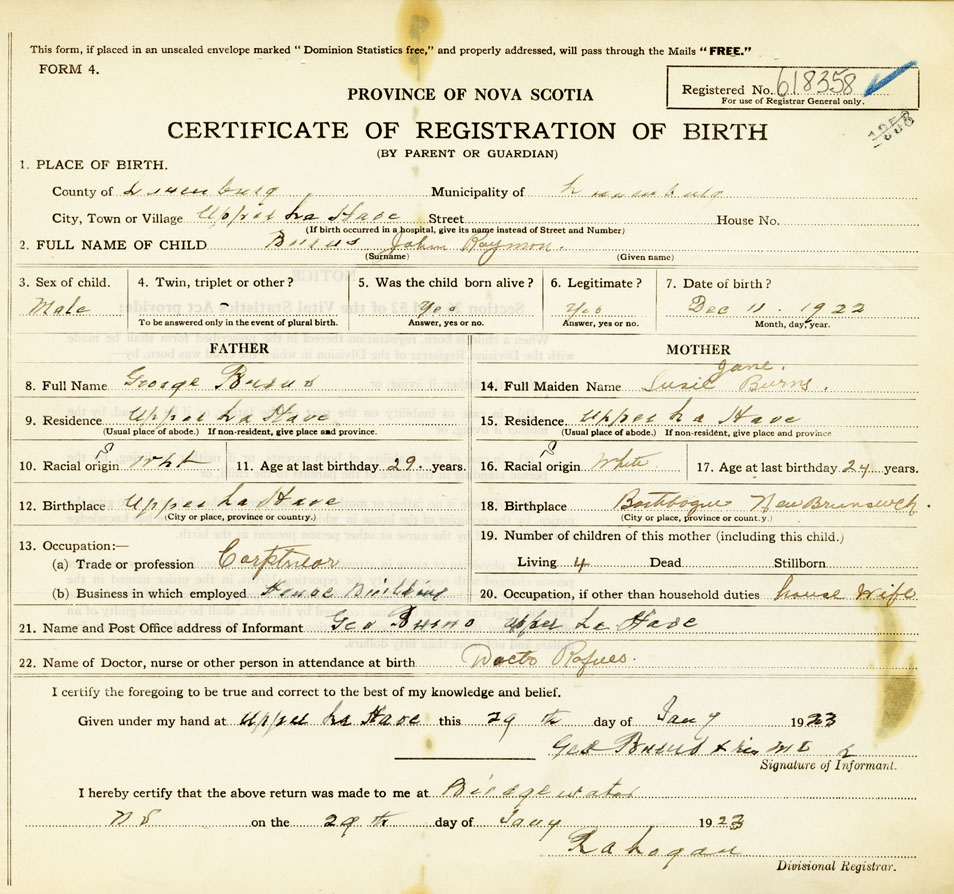 This form, if placed in an unsealed envelope marked "Dominion Statistics free," and properly addressed, will pass through the Mails "FREE."
FORM 4.
Registered No. 618358
For use of Registrar General only.
PROVINCE OF NOVA SCOTIA
1358
CERTIFICATE OF REGISTRATION OF BIRTH
(BY PARENT OR GUARDIAN)
1. PLACE OF BIRTH.
County of Lunenburg Municipality of Lunenburg
City, Town or Village Upper La Have Street House No.
(If birth occurred in a hospital, give its name instead of Street and Number)
2. FULL NAME OF CHILD Burns John Raymon.
(Surname) (Given name)
3. Sex of child. 4. Twin, triplet or other? 5. Was the child born alive? 6. Legitimate? 7. Date of birth?
Male - Yes Yes Dec 11. 1922
To be answered only in the event of plural birth. Answer, yes or no. Answer, yes or no. Month, day, year.
FATHER MOTHER
Jane.
8. Full Name George Burns 14. Full Maiden Name Susie Burns.
9. Residence Upper La Have 15. Residence Upper La Have
(Usual place of abode.) If non-resident, give place and province. (Usual place of abode.) If non-resident, give place and province
10. Racial origin Wht 11. Age at last birthday 29 years. 16. Racial origin White 17. Age at last birthday 24 years.
12. Birthplace Upper La Have 18. Birthplace New Brunswick.
(City or place, province or country.) (City or place, province or country.)
19. Number of children of this mother (including this child.)
13. Occupation:—
(a) Trade or profession Living 4 Dead Stillborn
(b) Business in which employed Building 20. Occupation, if other than household duties house wife
21. Name and Post Office address of Informant Geo Burns Upper La Have
22. Name of Doctor, nurse or other person in attendance at birth Doctor
I certify the foregoing to be true and correct to the best of my knowledge and belief.
Given under my hand at Upper La Have this 29 th day of Jany 1923
Geo Burns
Signature of Informant.
I hereby certify that the above return was made to me at Bridgewater
N S on the 29th day of Jany 1923
Divisional Registrar.